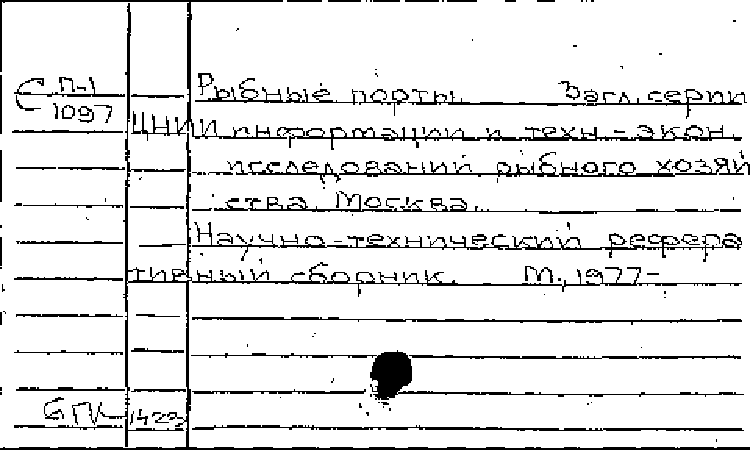 С П-1
1097
Рыбные порты. Загл. серии
ЦНИИ информации и техн.-экон.
исследований рыбного хозяй
ства, Москва.
Научно-технический рефера
тивный сборник. М., 1977-
БГК 1423